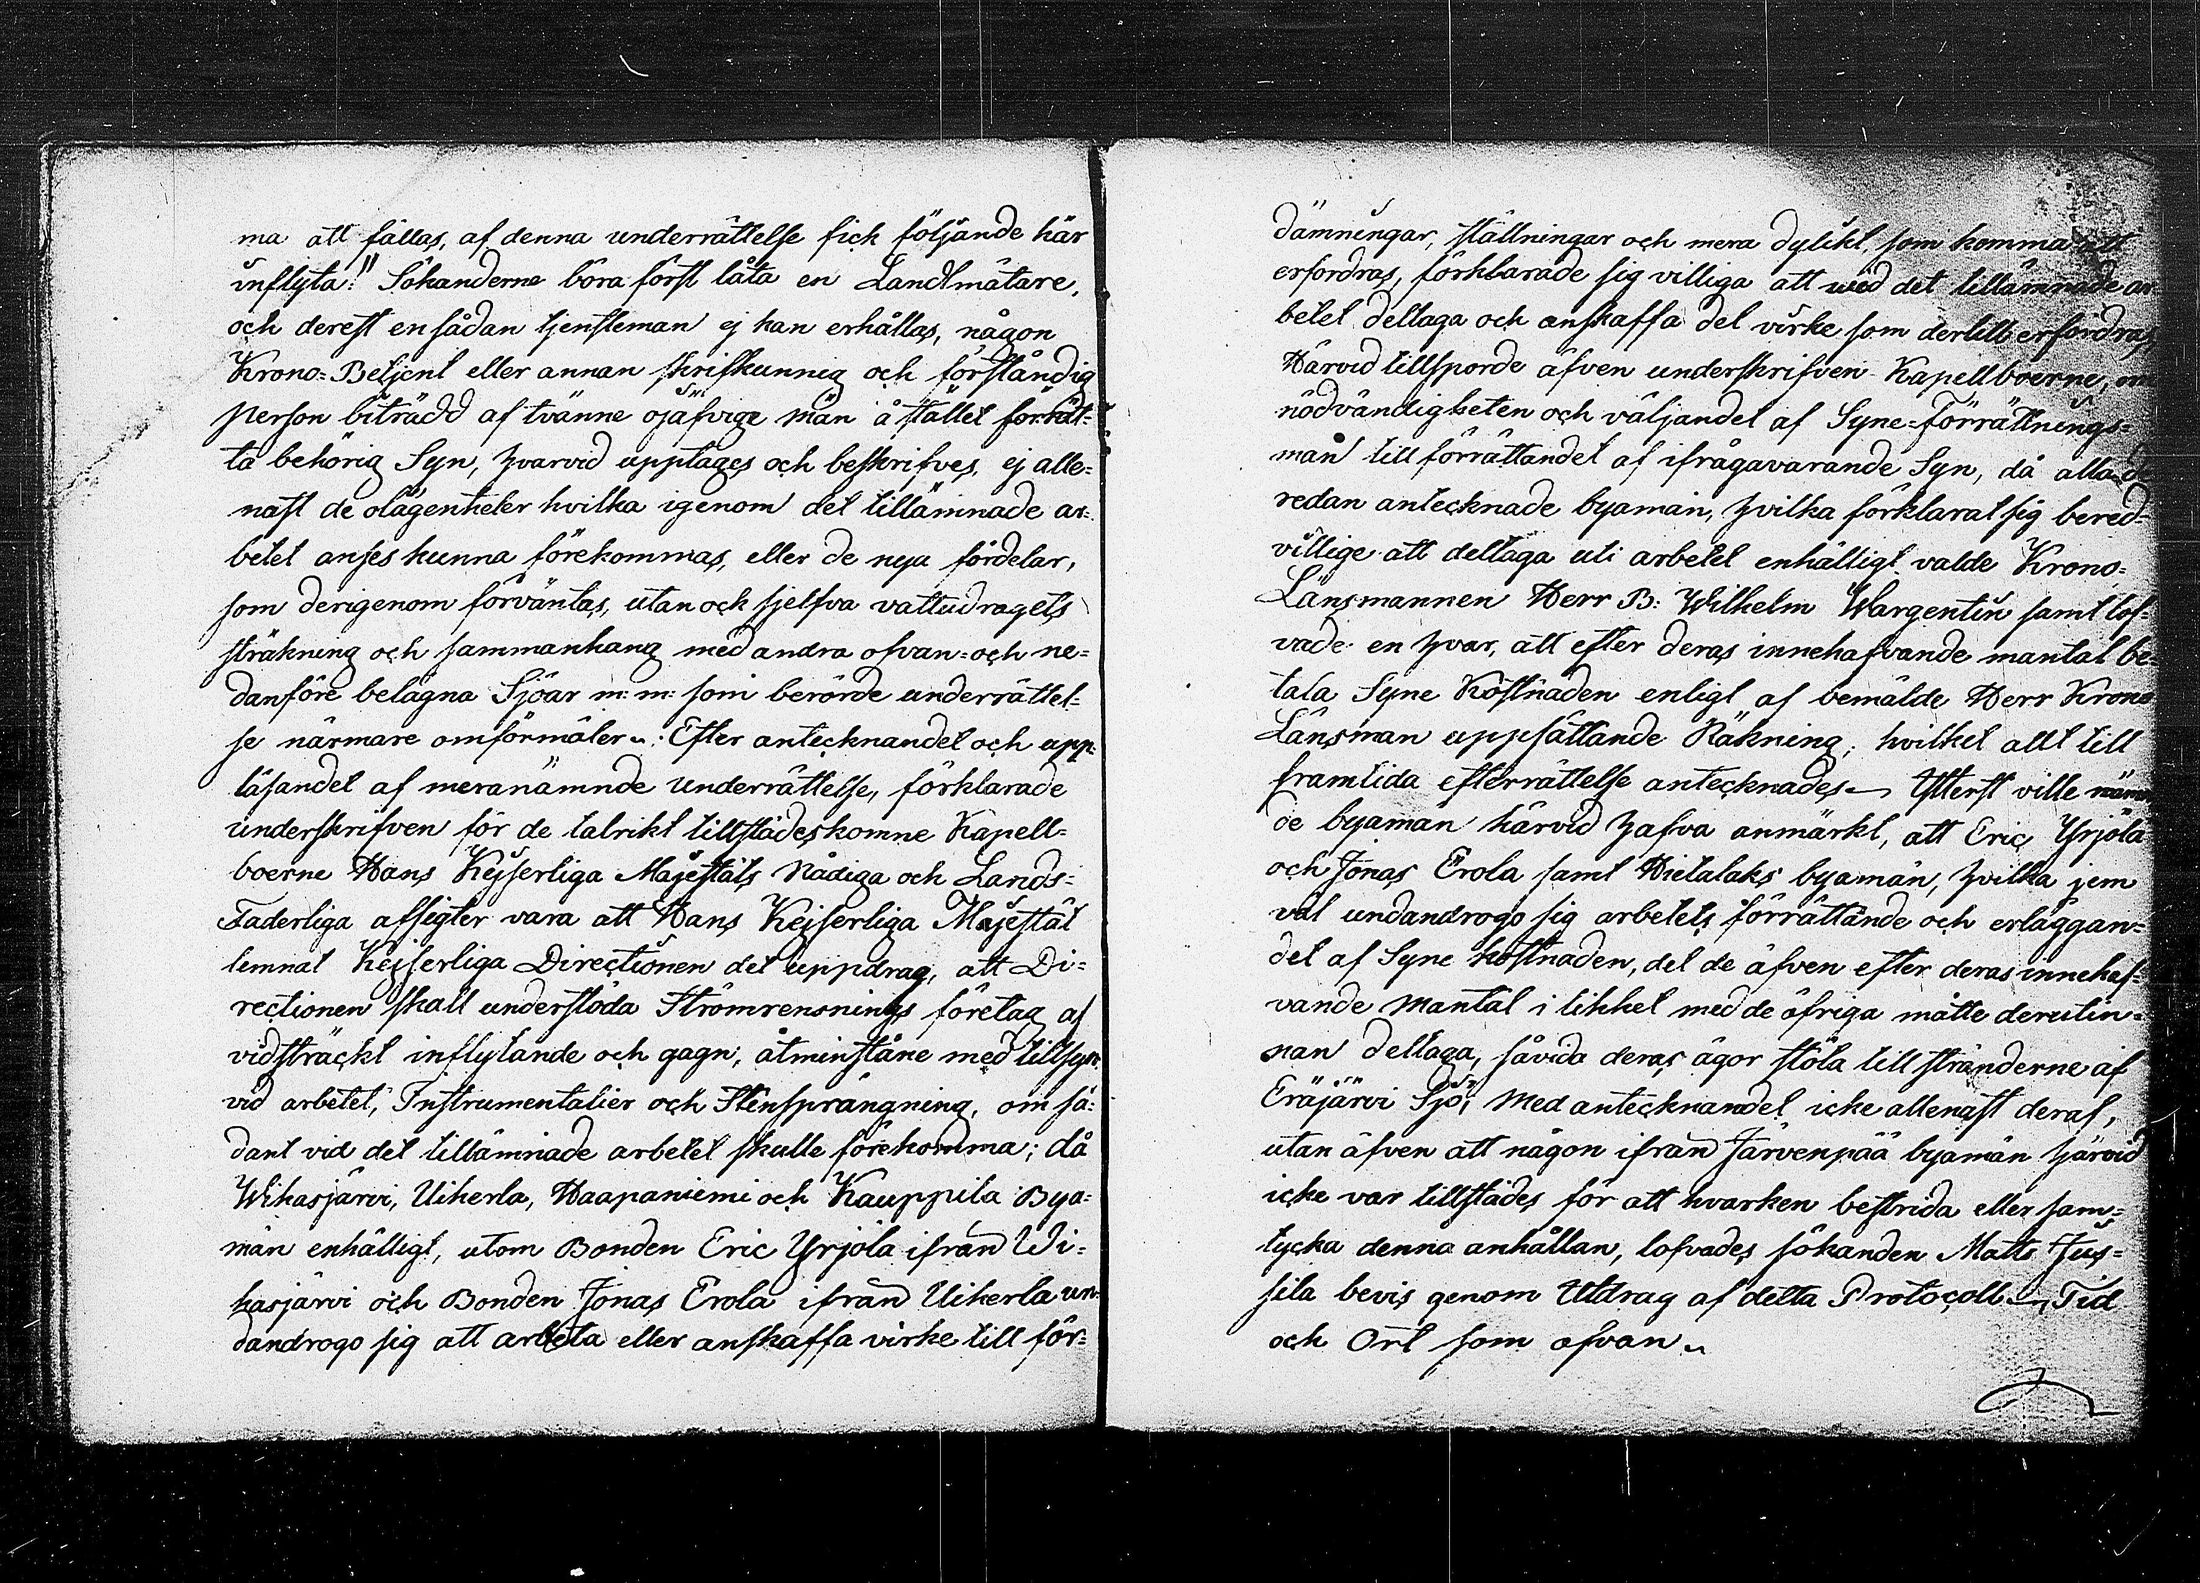 ma att fällas, af denna underrättelse fick följande här
inflyta!" Sökanderne böra först låta en Landtmätare,
och derest en sådan tjensteman ej kan erhållas, någon
Krono-Betjent eller annan skrifkunnig och förståndig
person biträdd af tvänne ojäfvige män å stället förrät-
ta behörig Syn, hvarvid upptages och beskrifves, ej alle-
nast de olägenheter hvilka igenom det tillämnade ar-
betet anses kunna förekommas, eller de nya fördelar,
som derigenom förväntas, utan och sjelfva vattudragets
sträkning och sammanhang med andra ofvan- och ne-
danföre belägna Sjöar m: m: som berörde underrättel-
se närmare omförmäler. Efter antecknandet och upp-
läsandet af meranämnde underrättelse, förklarade
underskrifven för de talrikt tillstädeskomne Kapell-
boerne Hans Kejserliga Majestäts Nådiga och Lands-
Faderliga afsigter vara att Hans Kejserliga Majestät
lemnat Kejserliga Directionen det uppdrag, att Di-
rectionen skall understöda Strömrensnings företag af
vidsträckt inflytande och gagn, åtminstone med tillsyn
vid arbetet, Instrumentalier och Stensprängning, om så-
dant vid det tillämnade arbetet skulle förekomma; då
Wihasjärvi, Uiherla, Haapaniemi och Kauppila Bya-
män enhälligt, utom Bonden Eric Yrjölä ifrån Wi-
hasjärvi och Bonden Jonas Erola ifrån Uiherla un-
dandrogo sig att arbeta eller anskaffa virke till för-
dämningar, ställningar och mera dylikt, som komma att
erfordras, förklarade sig villiga att wid det tillämnade ar
betet deltaga och anskaffa det virke som dertill erfordras,
Härvid tillsporde äfven underskrifven Kapellboerne, om
nödvändigheten och väljandet af Syne-Förrättnings-
män till förrättandet af ifrågavarande Syn, då alla de
redan antecknade byamän, hvilka förklarat sig bered-
villige att deltaga uti arbetet enhälligt valde Krono-
Länsmannen Herr B: Wilhelm Wargentin samt lof-
vade en hvar, att efter deras innehafvande mantal be-
tala Syne Kostnaden enligt af bemälde Herr Krono
Länsman uppsättande Räkning, hvilket allt till
framtida efterrättelse antecknades. Ytterst ville näm
de byamän härvid hafva anmärkt, att Eric Yrjölä
och Jonas Erola samt Hietalaks byamän, hvilka jem
väl undandrogo sig arbetets förrättande och erläggan-
det af Syne kostnaden, det de äfven efter deras innehaf-
vande Mantal i likhet med de öfriga måtte derutin-
nan deltaga, såvida deras ägor stöta till stränderne af
Eräjärvi Sjö, Med antecknandet icke allenast deraf,
utan äfven att någon ifrån Järvenpää byamän härvid
icke var tillstädes för att hvarken bestrida eller sam-
tycka denna anhållan, lofvades sökanden Matts Jus-
sila bevis genom Utdrag af detta Protocoll. Tid
och Ort som ofvan.